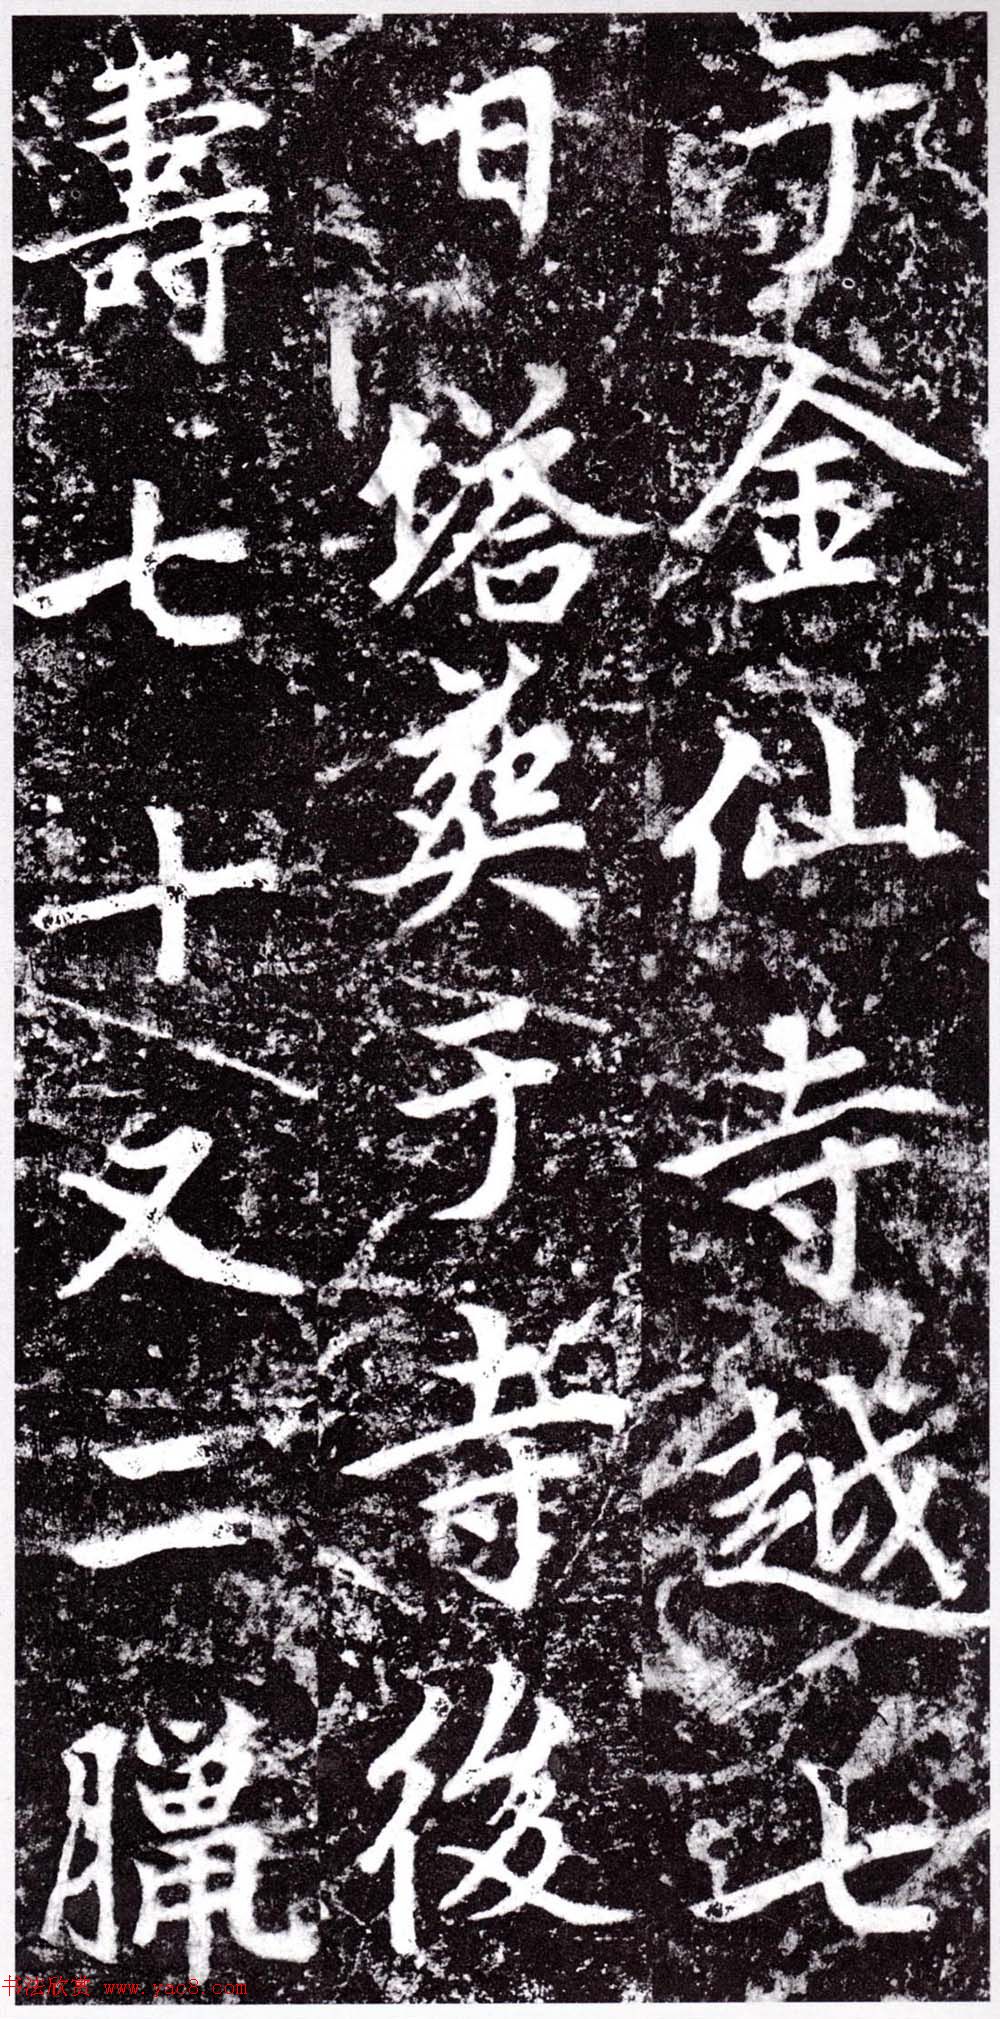 于金仙寺越七
日塔葬于寺後
壽七十又二臘
书法欣赏 www.yac8.com